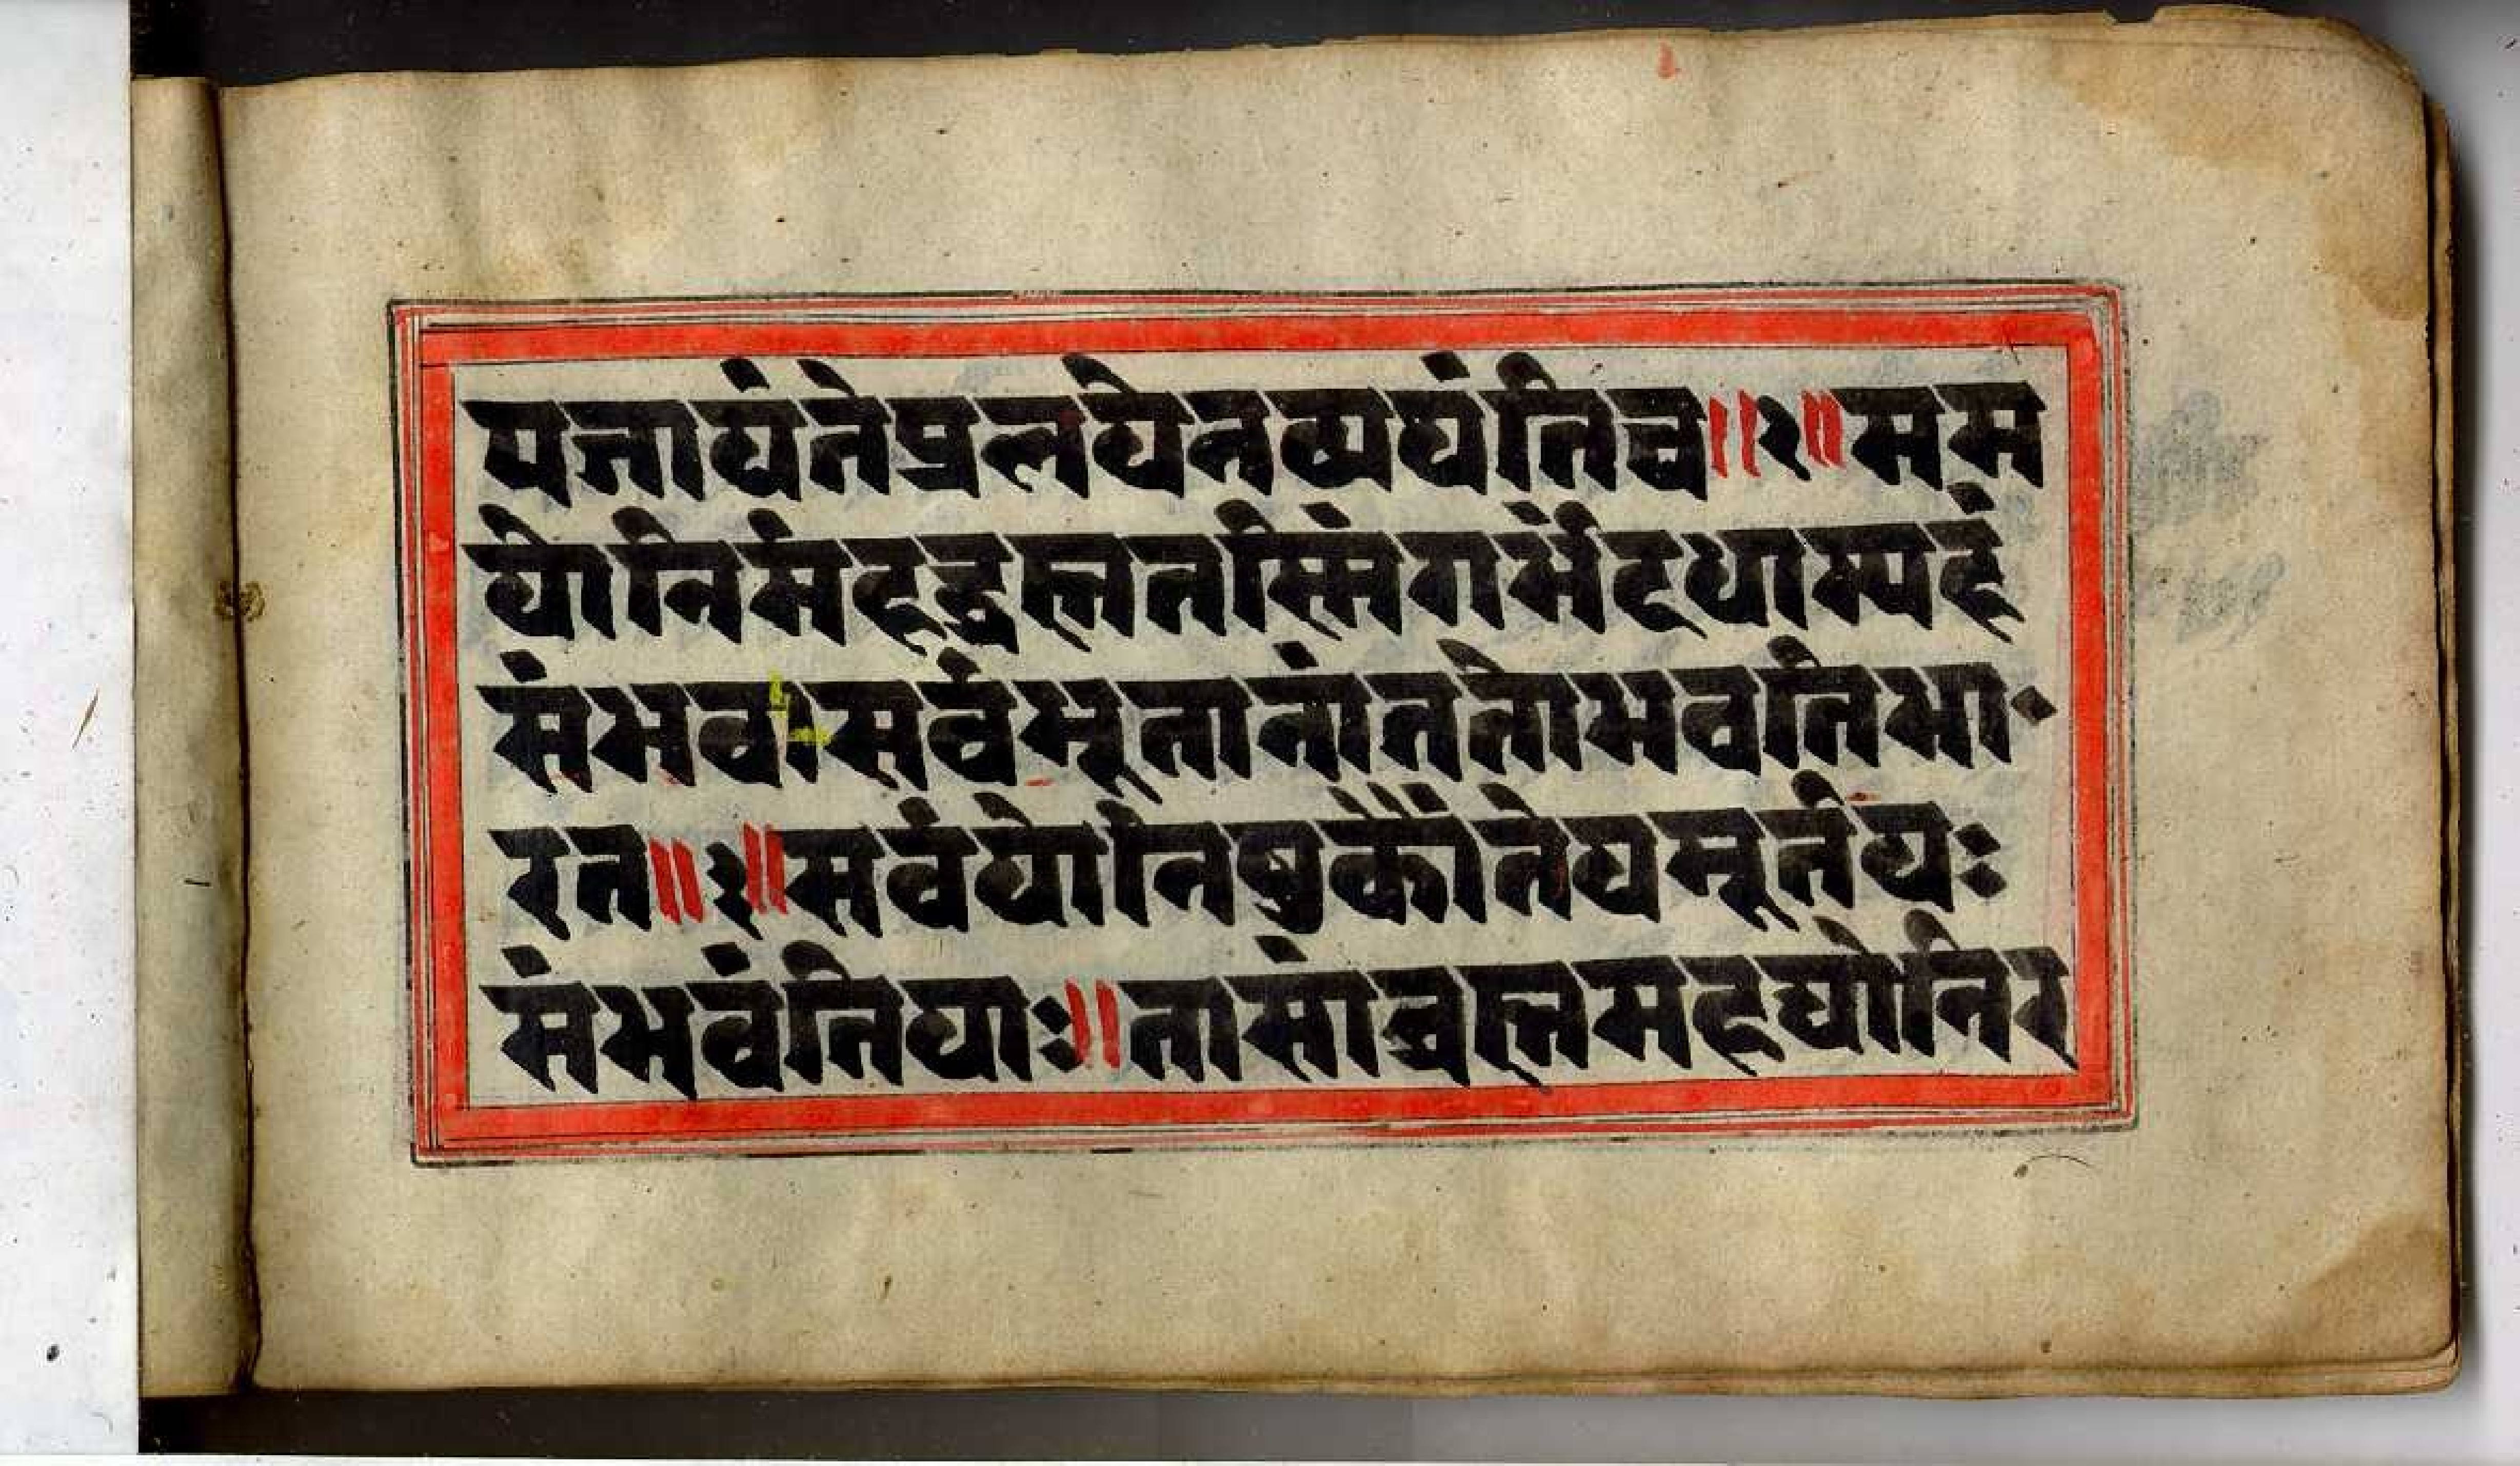 पजायंतेप्रलयेनव्यथंतिच॥२॥मम
योनिर्महद्ब्रह्मतस्मिंगर्भंदधाम्यहं
संभवःसर्वभूतानांततोभवतिभा
रत॥३॥सर्वयोनिषुकौंतेयमूर्तयः
संभवंतियाः॥तासांब्रह्ममहद्योनिर